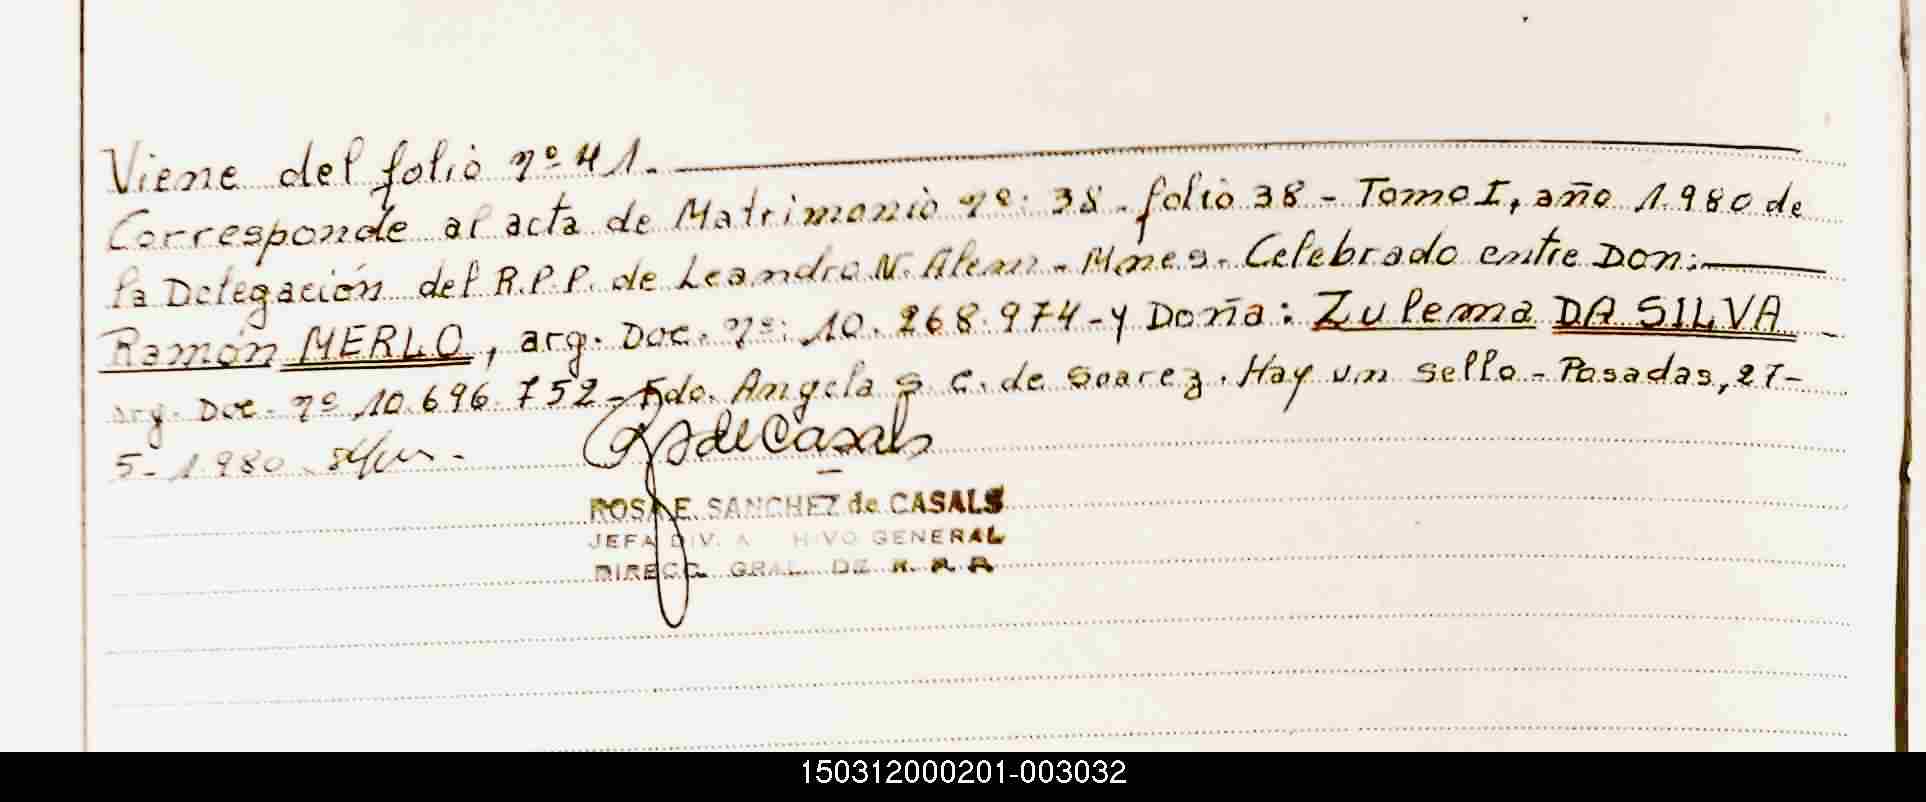 Viene del folio nº 41.-
Corresponde al acta de Matrimonio nº: 38 - folio 38 - Tomo I, año 1.980 de
la Delegación del R.P.P. de Leandro N. Alem - Mnes. Celebrado entre Don:
Ramón MERLO, arg. Doc. nº: 10.268.974 - y Doña: Zulema DA SILVA
arg. Doc. nº 10.696.752 - Fdo. Angela S. C. de Soarez. Hay un sello - Posadas, 27-
5-1.980.
RSdeCasals
ROSA E. SANCHEZ de CASALS
JEFA DIV. A HIVO GENERAL
DIRECC. GRAL. DE R. P. P.
150312000201-003032